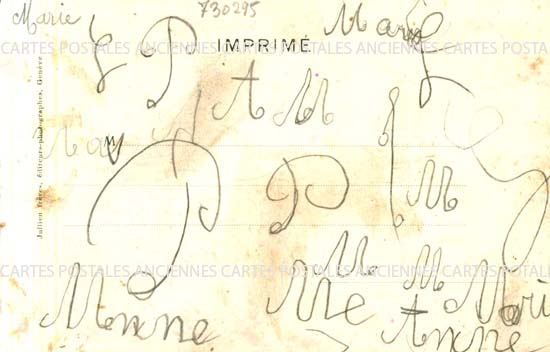 Marie 730295 Marie
CARTES POSTALES ANCIENNES CARTES POSTALES ANCIENNES CARTES POSTALES
IMPRIMÉ
P
A M
M
Jullien frères, éditeurs-photographes, Genève
P M
M
CARTES POSTALES ANCIENNES CARTES POSTALES ANCIENNES CARTES POSTALES
M
Me Mari
Minne Anne